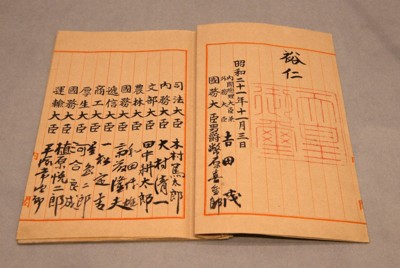 裕仁
天皇御璽
昭和二十一年十一月三日
内閣總理大臣兼
外務大臣
吉田茂
國務大臣 男爵 幣原喜重郎
司法大臣 木村篤太郎
内務大臣 大村清一
文部大臣 田中耕太郎
農林大臣 和田博雄
國務大臣 斎藤隆夫
遞信大臣 一松定吉
商工大臣 星島二郎
厚生大臣 河合良成
國務大臣 植原悦二郎
運輸大臣 平塚常次郎